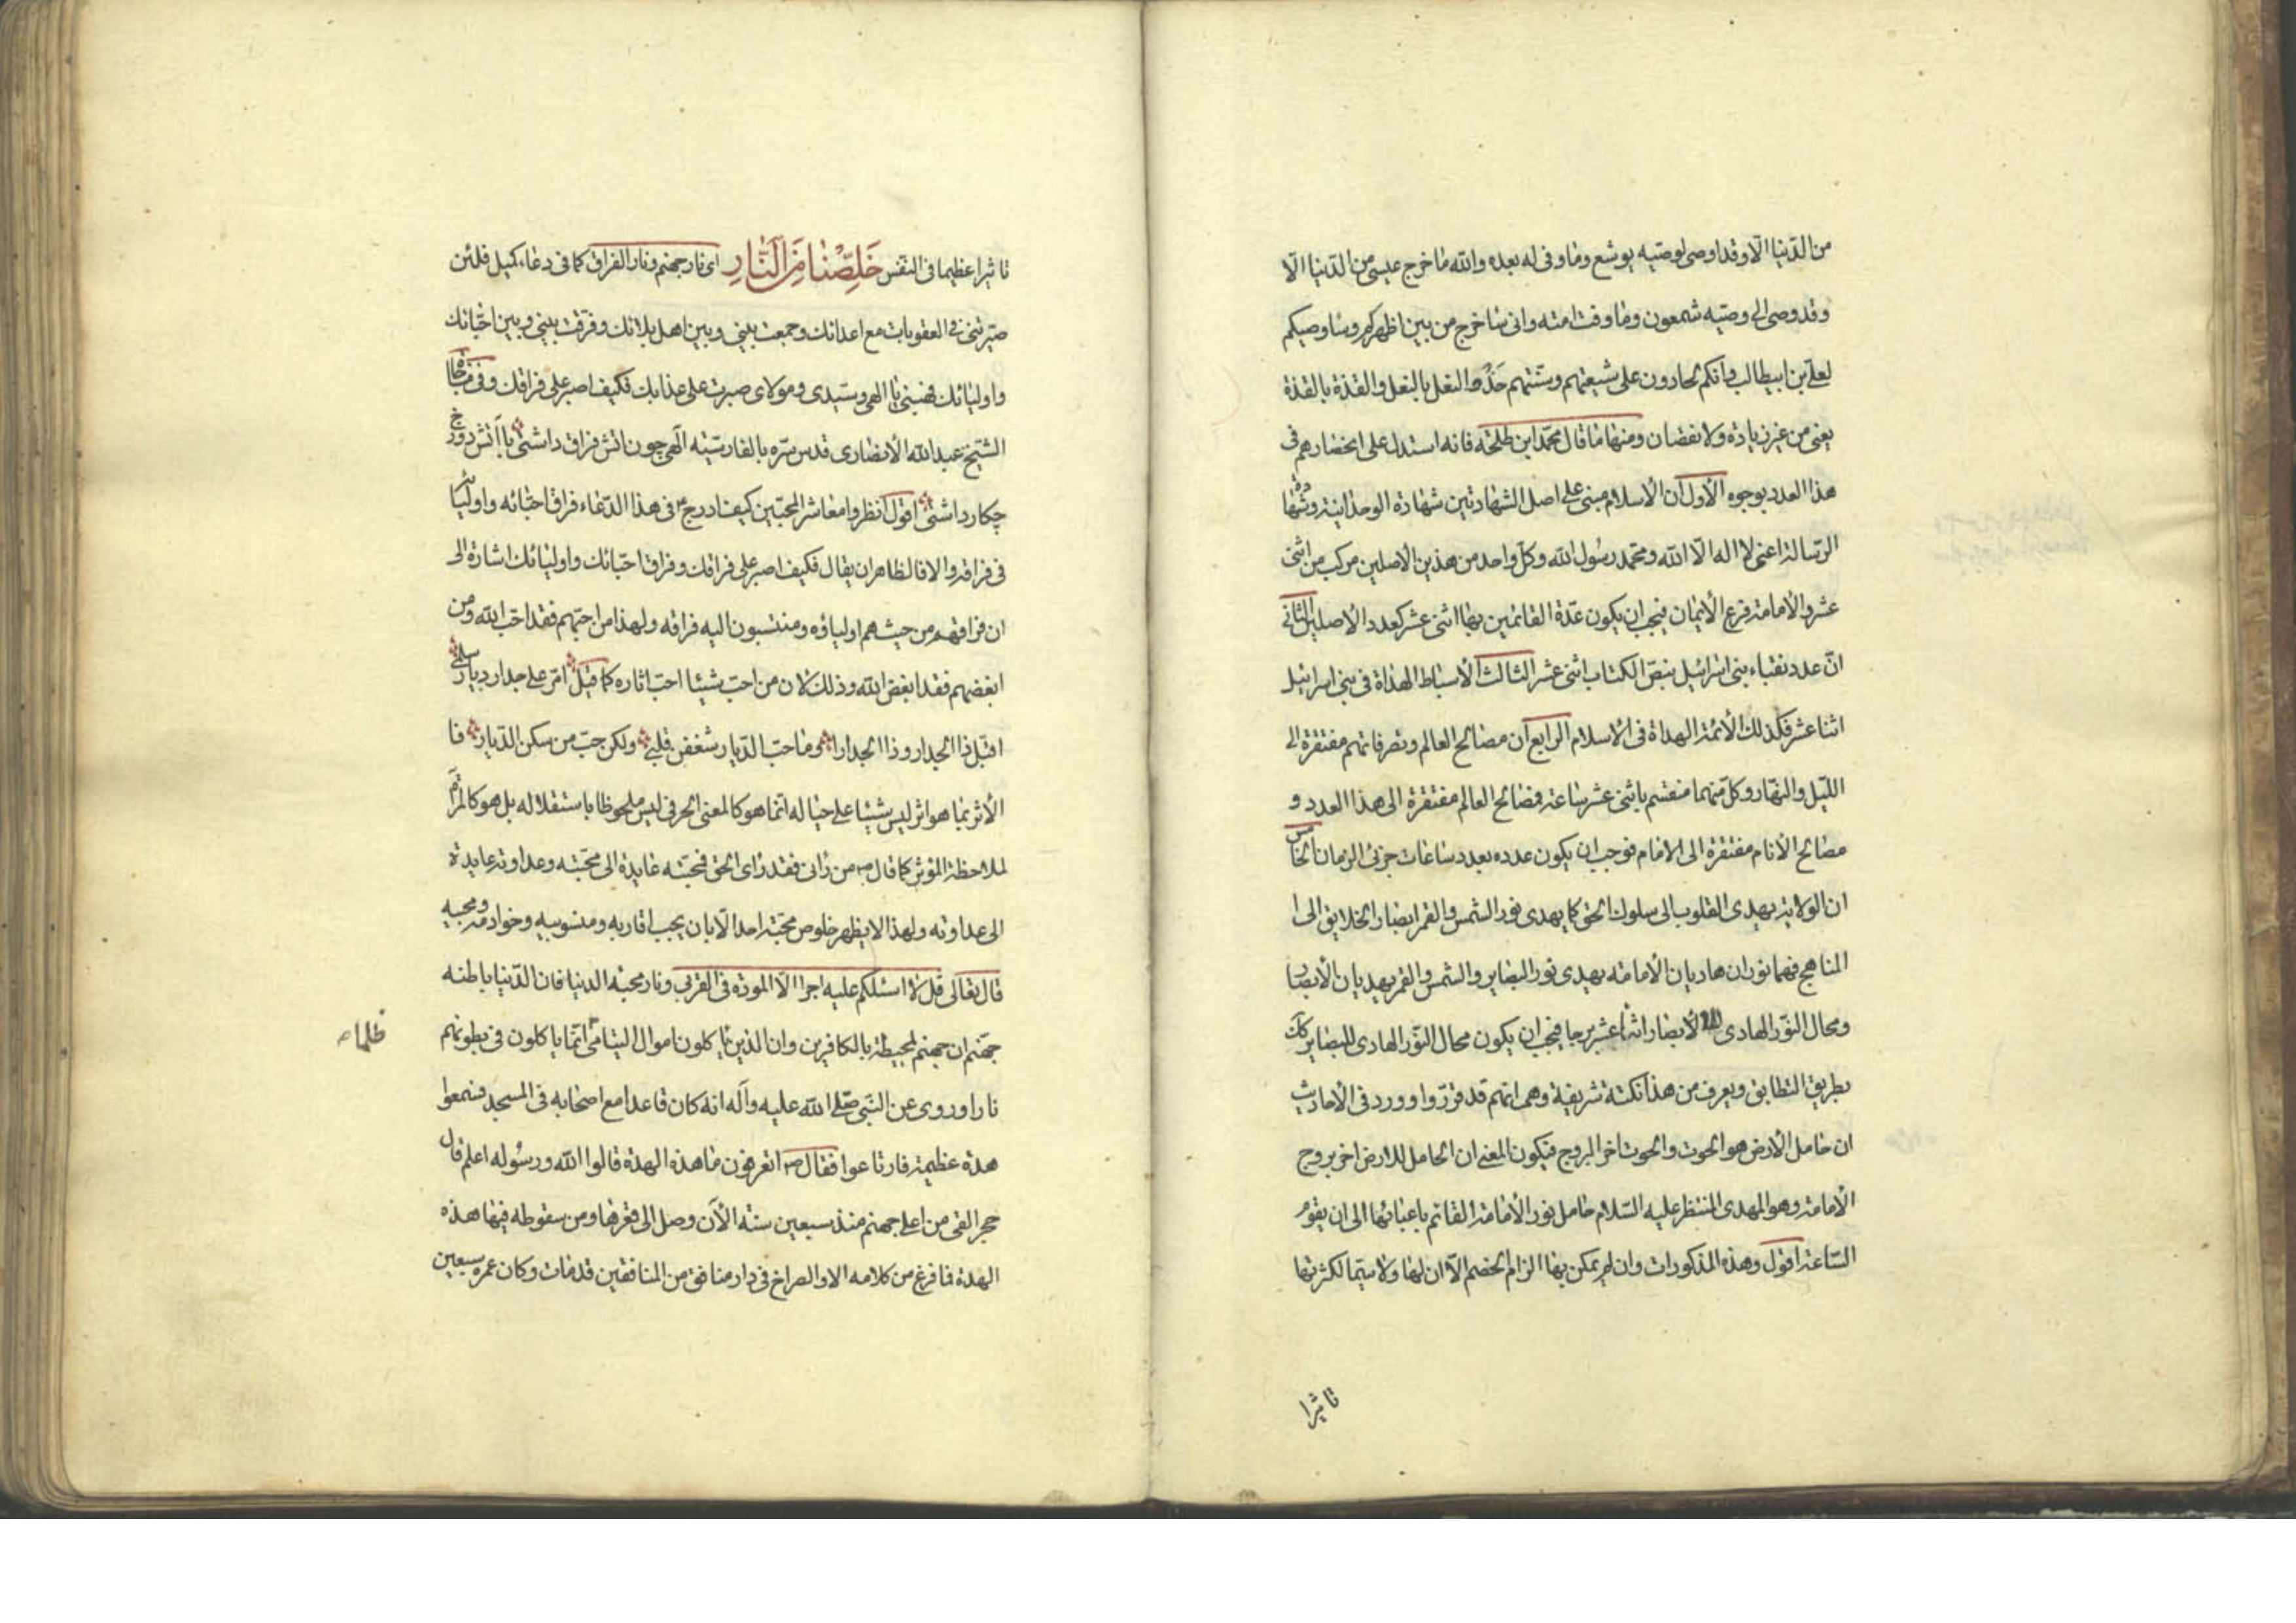 من الدّنيا الّا وقد اوصى لوصيّه يوشع وما وفى له بعده والله ما خرج عيسى من الدّنيا الّا
وقد وصى الى وصيّه شمعون وما وفت امته وانى ساخرج من بين اظهركم وساوصيكم
لعلى بن ابيطالب وانكم لحاذون على شيعتهم وسنتهم حَذْوَ النعل بالنعل والقذة بالقذة
يعنى من غير زيادة ولا نقصان ومنها ما قال محمّد ابن طلحة فانه استدل على انحصارهم فى
هذا العدد بوجوه الأول ان الأسلام مبنى على اصل الشهادتين شهادة الوحدانية وشهادة
الرّسالة اعنى لا اله الّا الله ومحمد رسول الله وكلّ واحد من هذين الأصلين مركب من اثنى
عشر والأمامة فرع الأيمان فيجب ان يكون عدّة القائمين بها اثنى عشر كعدد الأصلين الثانى
انّ عدد نقباء بنى اسرائيل بنصّ الكتاب اثنى عشر الثالث الأسباط الهداة فى بنى اسرائيل
اثنا عشر فكذلك الأئمة الهداة فى الأسلام الرابع ان مصالح العالم وتصرفاتهم مفتقرة الى
اللّيل والنّهار وكلّ منهما منقسم باثنى عشر ساعة فمصالح العالم مفتقرة الى هذا العدد و
مصالح الأنام مفتقرة الى الامام فوجب ان يكون عدده بعدد ساعات جزئى الزمان الخامس
ان الولاية يهدى القلوب الى سلوك الحق كما يهدى نور الشمس والقمر ابصار الخلايق الى ا
المناهج فهما نوران هاديان الأمامة يهدى نور البصاير والشمس والقمر يهديان الأبصار
ومحال النوّر الهادى للأبصار اثنا عشر برجا فيجب ان يكون محال النوّر الهادى للبصاير كك
بطريق التطابق ويعرف من هذا نكتة شريفة وهى انهم قد قرّروا وورد فى الأحاديث
ان حامل الأرض هو الحوت والحوت اخر البروج فيكون المعنى ان الحامل للارض اخر بروج
الأمامة وهو المهدى المنتظر عليه السّلام حامل نور الأمامة القائم باعبائها الى ان يقوم
السّاعة اقول وهذه المذكورات وان لم يمكن بها الزام الخصم الّا ان لها ولا سيّما لكثرتها
تاثيرا
تاثيرا عظيما فى النفس خَلِّصْنَا مِنَ النَّارِ اى نار جهنم ونار الفراق كما فى دعاء كميل فلئن
صيّرتنى فى العقوبات مع اعدائك وجمعت بينى وبين اهل بلائك وفرّقت بينى وبين احبّائك
واوليائك فهبنى يا الهى وسيّدى ومولاى صبرت على عذابك فكيف اصبر على فراقك وفى مناجاة
الشّيخ عبد الله الأنصارى قدس سرّه بالفارسيّة الهى چون اتش فراق داشتى با اتش دوزخ
چكار داشتى اقول انظروا معاشر المحبّين كيف ادرج ع فى هذا الدّعاء فراق احبّائه واوليائه
فى فراقه والا فالظاهر ان يقال فكيف اصبر على فراقك وفراق احبّائك واوليائك اشارة الى
ان فراقهم من حيث هم اولياؤه ومنتسبون اليه فراقه ولهذا من احبّهم فقد احبّ الله ومن
ابغضهم فقد ابغض الله وذلك لان من احبّ شيئا احبّ اثاره كما قيل امرّ على جدار ديار سلمى
اقبّل ذا الجدار وذا الجدارا وما حبّ الدّيار شغفن قلبى ولكن حبّ من سكن الدّيارا فا
الأثر بما هو اثر ليس شيئا على حياله انّما هو كالمعنى الحرفى ليس ملحوظا باستقلاله بل هو كالمرآة
لملاحظة المؤثر كما قال ص من رانى فقد راى الحق فمحبّته عايدة الى محبّته وعداوته عايدة
الى عداوته ولهذا لا يظهر خلوص محبّة احد الّا بان يحب اقاربه ومنسوبيه وخوادمه ومحبيه
قال تعالى قل لا اسئلكم عليه اجرا الّا المودّة فى القربى ونار محبة الدنيا فان الدّنيا باطنه
جهنم ان جهنم لمحيطة بالكافرين وان الذين ياكلون اموال اليتامى انّما ياكلون فى بطونهم
ظلما
نارا وروى عن النبّى صلّى الله عليه وآله انه كان قاعدا مع اصحابه فى المسجد فسمعوا
هدّة عظيمة فارتاعوا فقال ص اتعرفون ما هذه الهدة قالوا الله ورسوله اعلم قال
حجر القى من اعلى جهنم منذ سبعين سنة الأن وصل الى قعرها ومن سقوطه فيها هذه
الهدة فما فرغ من كلامه الا والصراخ فى دار منافق من المنافقين قد مات وكان عمره سبعين